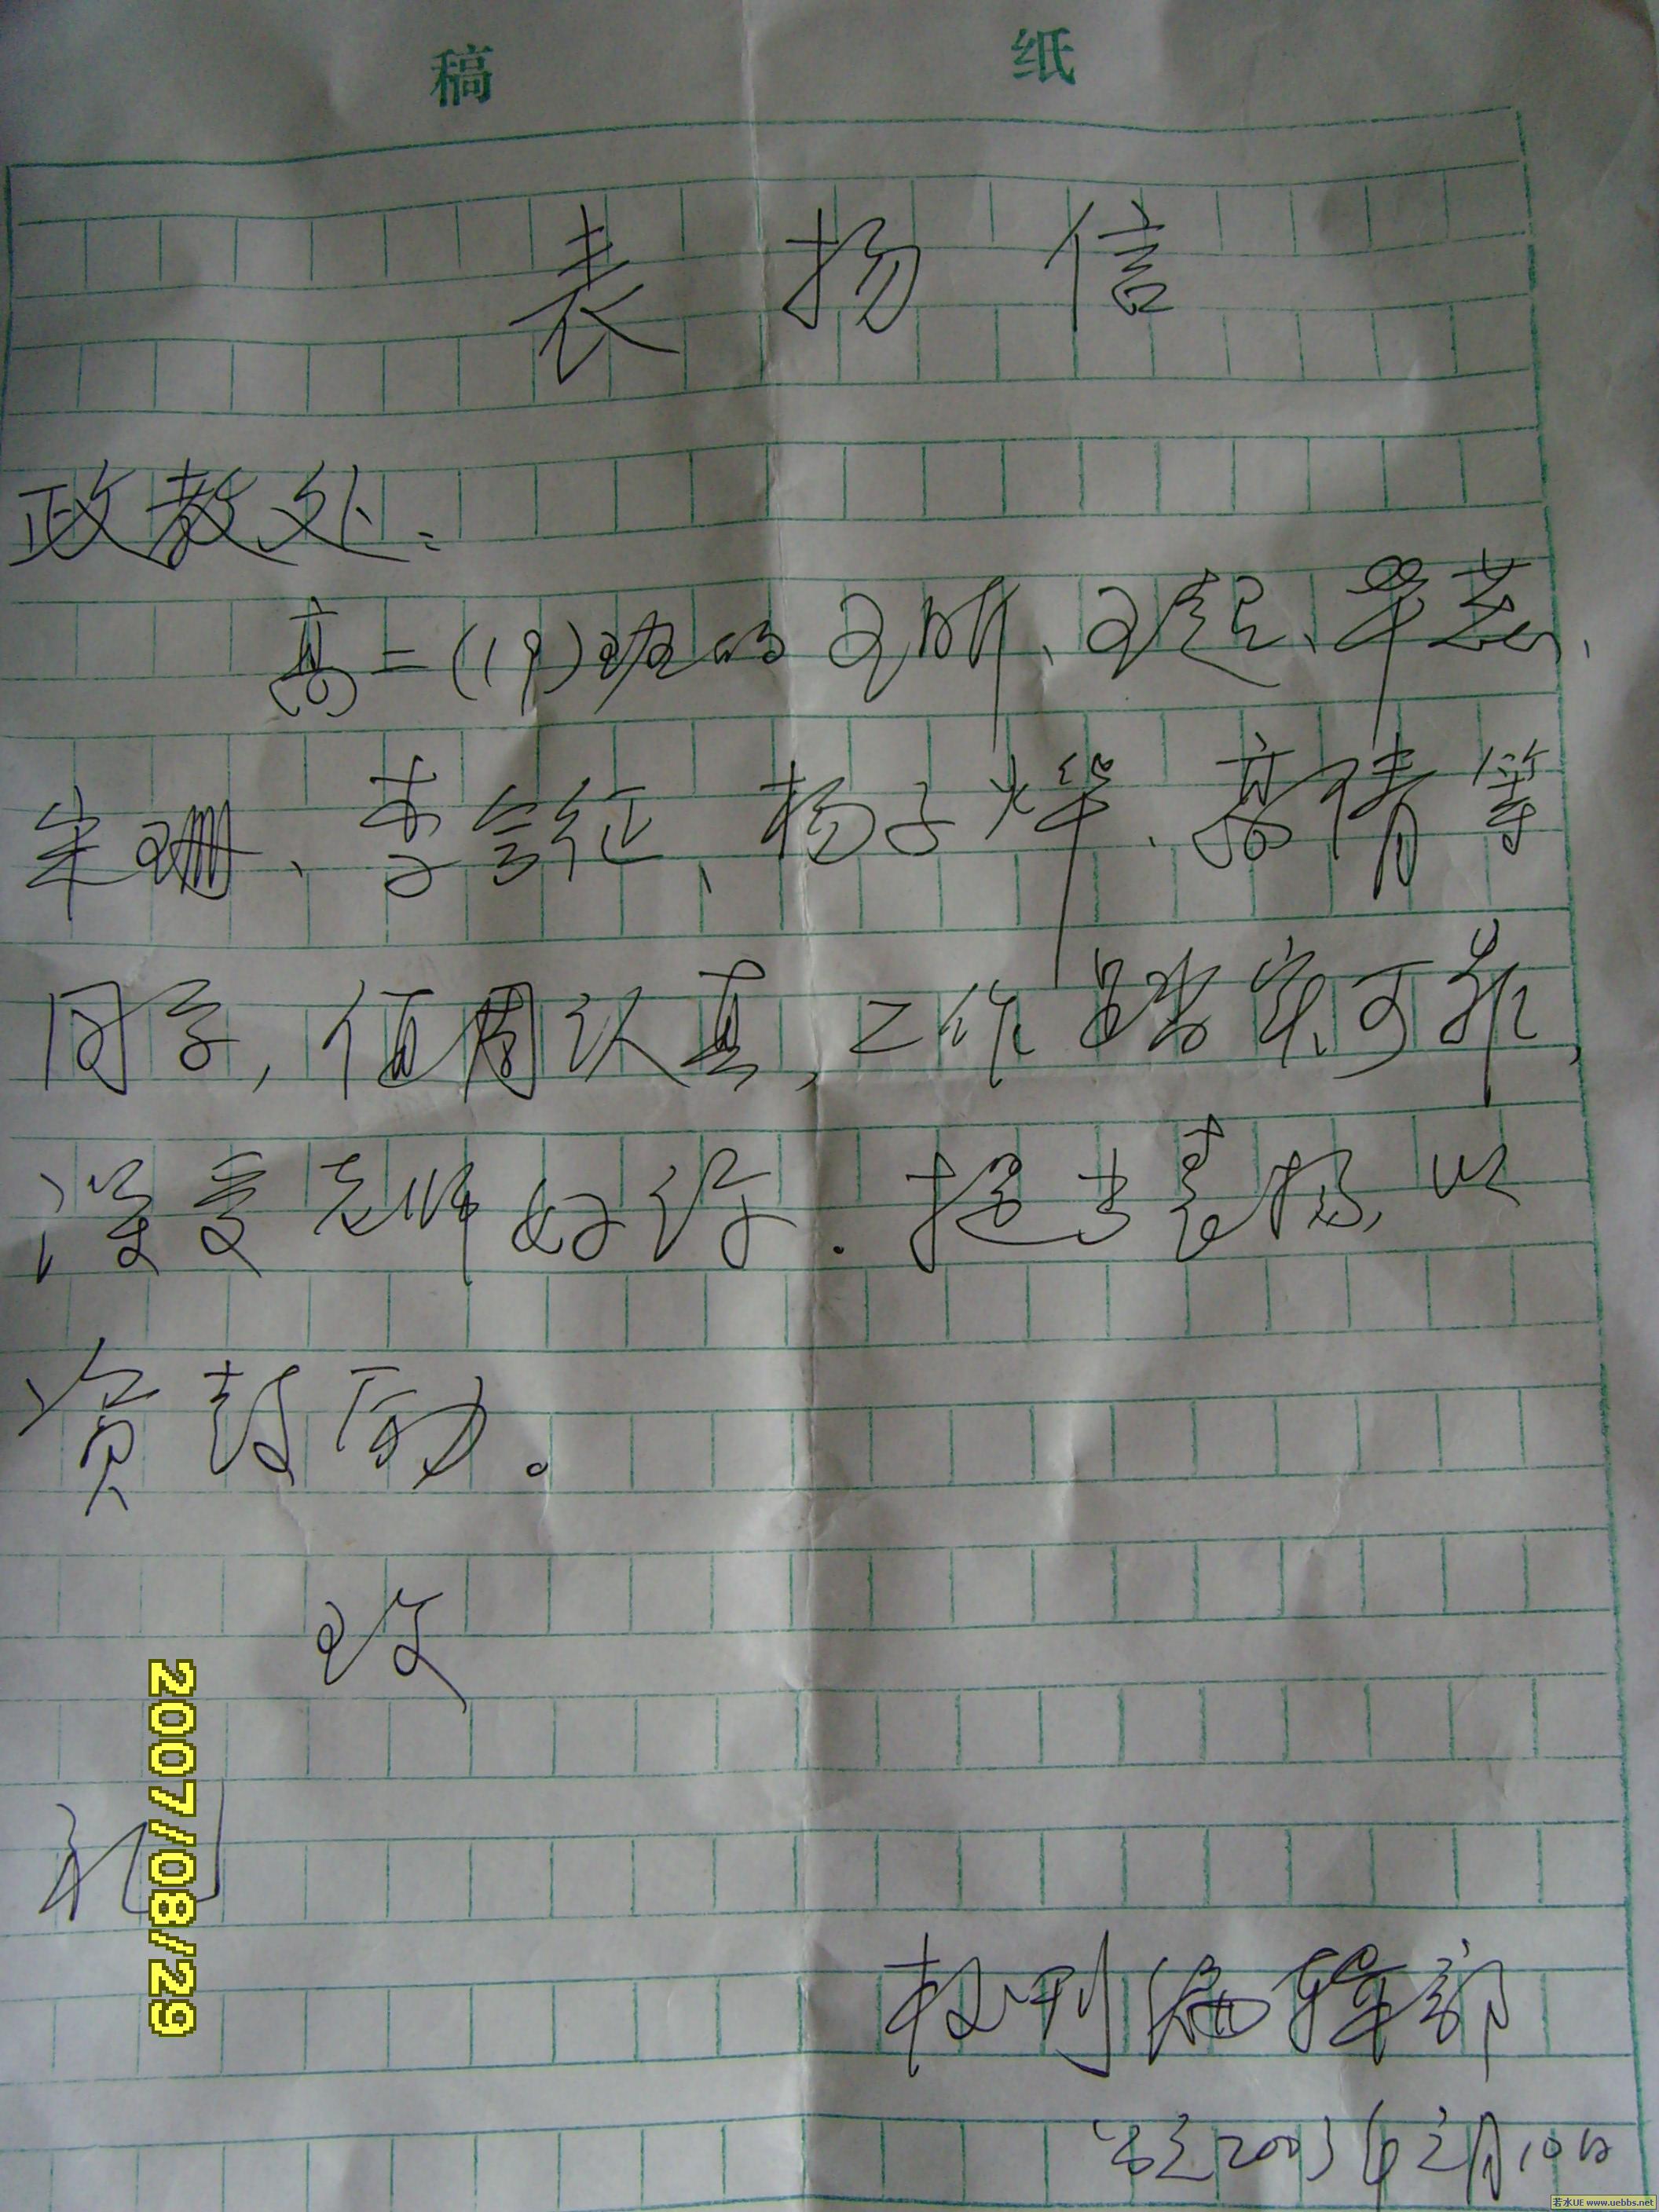 稿 纸
表扬信
政教处:
高二(19)班的王昕、王起、单蕊、
宋珊、李会征、杨子烨、高倩等
同学,值周认真,工作踏实可靠,
深受老师好评.提出表扬,以
资鼓励。
致
礼
校刊编辑部
2003年2月10日
2007/08/29
若水UE www.uebbs.net